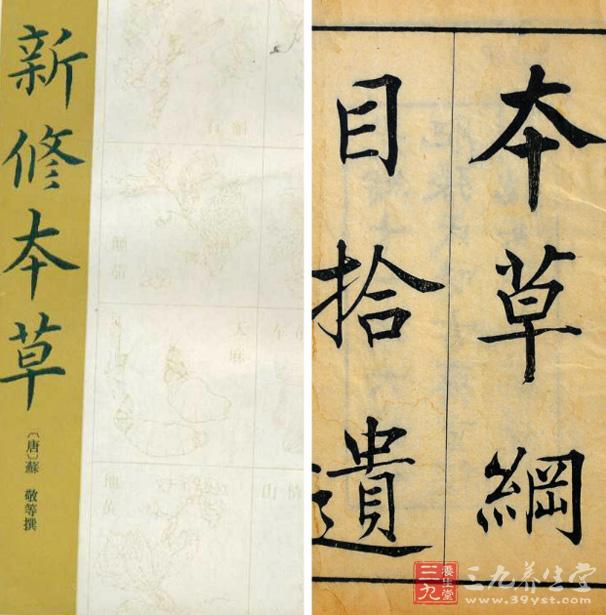 新修本草
〔唐〕蘇 敬等撰
天麻
本草綱
目拾遺
三九
養生堂
三九养生堂
www.39yst.com